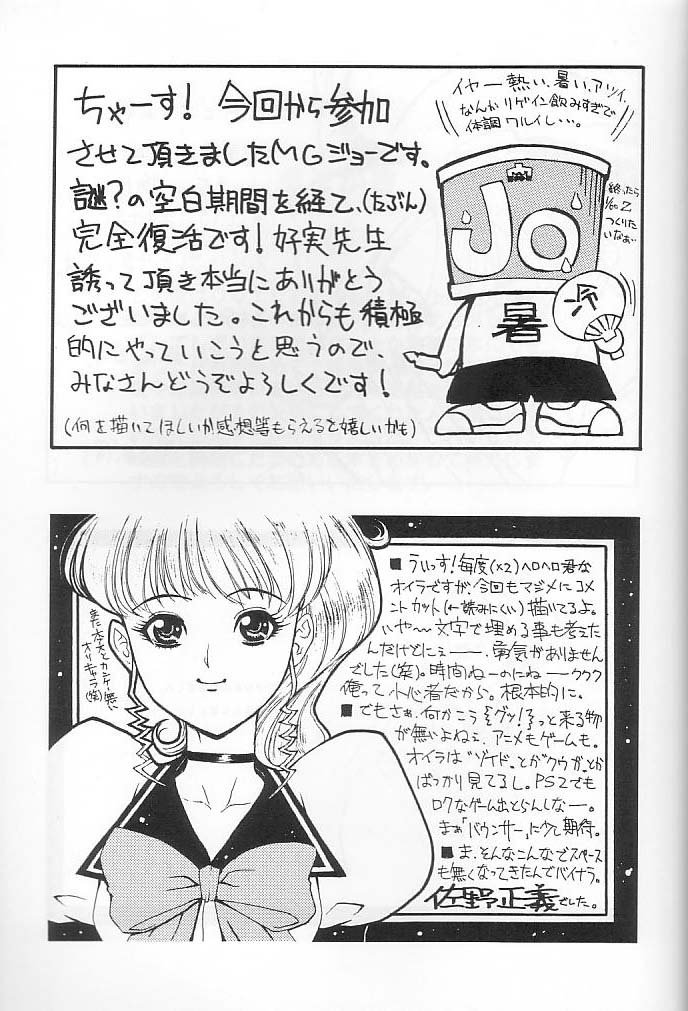 ちゃーす! 今回から参加
させて頂きましたMGジョーです。
謎?の空白期間を経て、(たぶん)
完全復活です! 好実先生
誘って頂き本当にありがとう
ございました。これからも積極
的にやっていこうと思うので、
みなさんどうぞよろしくです!
(何を描いてほしいか感想等もらえると嬉しいかも)
イヤー熱い、暑い、アツイ、
なんかリゲイン飲みすぎで
体調ワルイし…。
Jo
暑
終ったら
1/100 Z
つくりた
いなぁ…
■うぃっす!毎度(×2)ヘロヘロ君な
オイラですが、今回もマジメにコメ
ントカット(←読みにくい)描いてるよ。
いや〜文字で埋める事も考えた
んだけどにぇー、勇気がありません
でした(笑)。時間ねーのにねークククク
俺って小心者だから。根本的に。
■でもさぁ、何かこう{グッ!}っと来る物
が無いよねぇ、アニメもゲームも。
オイラは"ゾイド"とか"クウガ"とか
ばっかり見てるし。PS2でも
ロクなゲーム出とらんしなー。
まぁ「バウンサー」に少し期待。
■ま、そんなこんなでスペース
も無くなってきたんでバイナラ。
佐野正義でした。
また本文とカンケー無い
オリキャラ(笑)